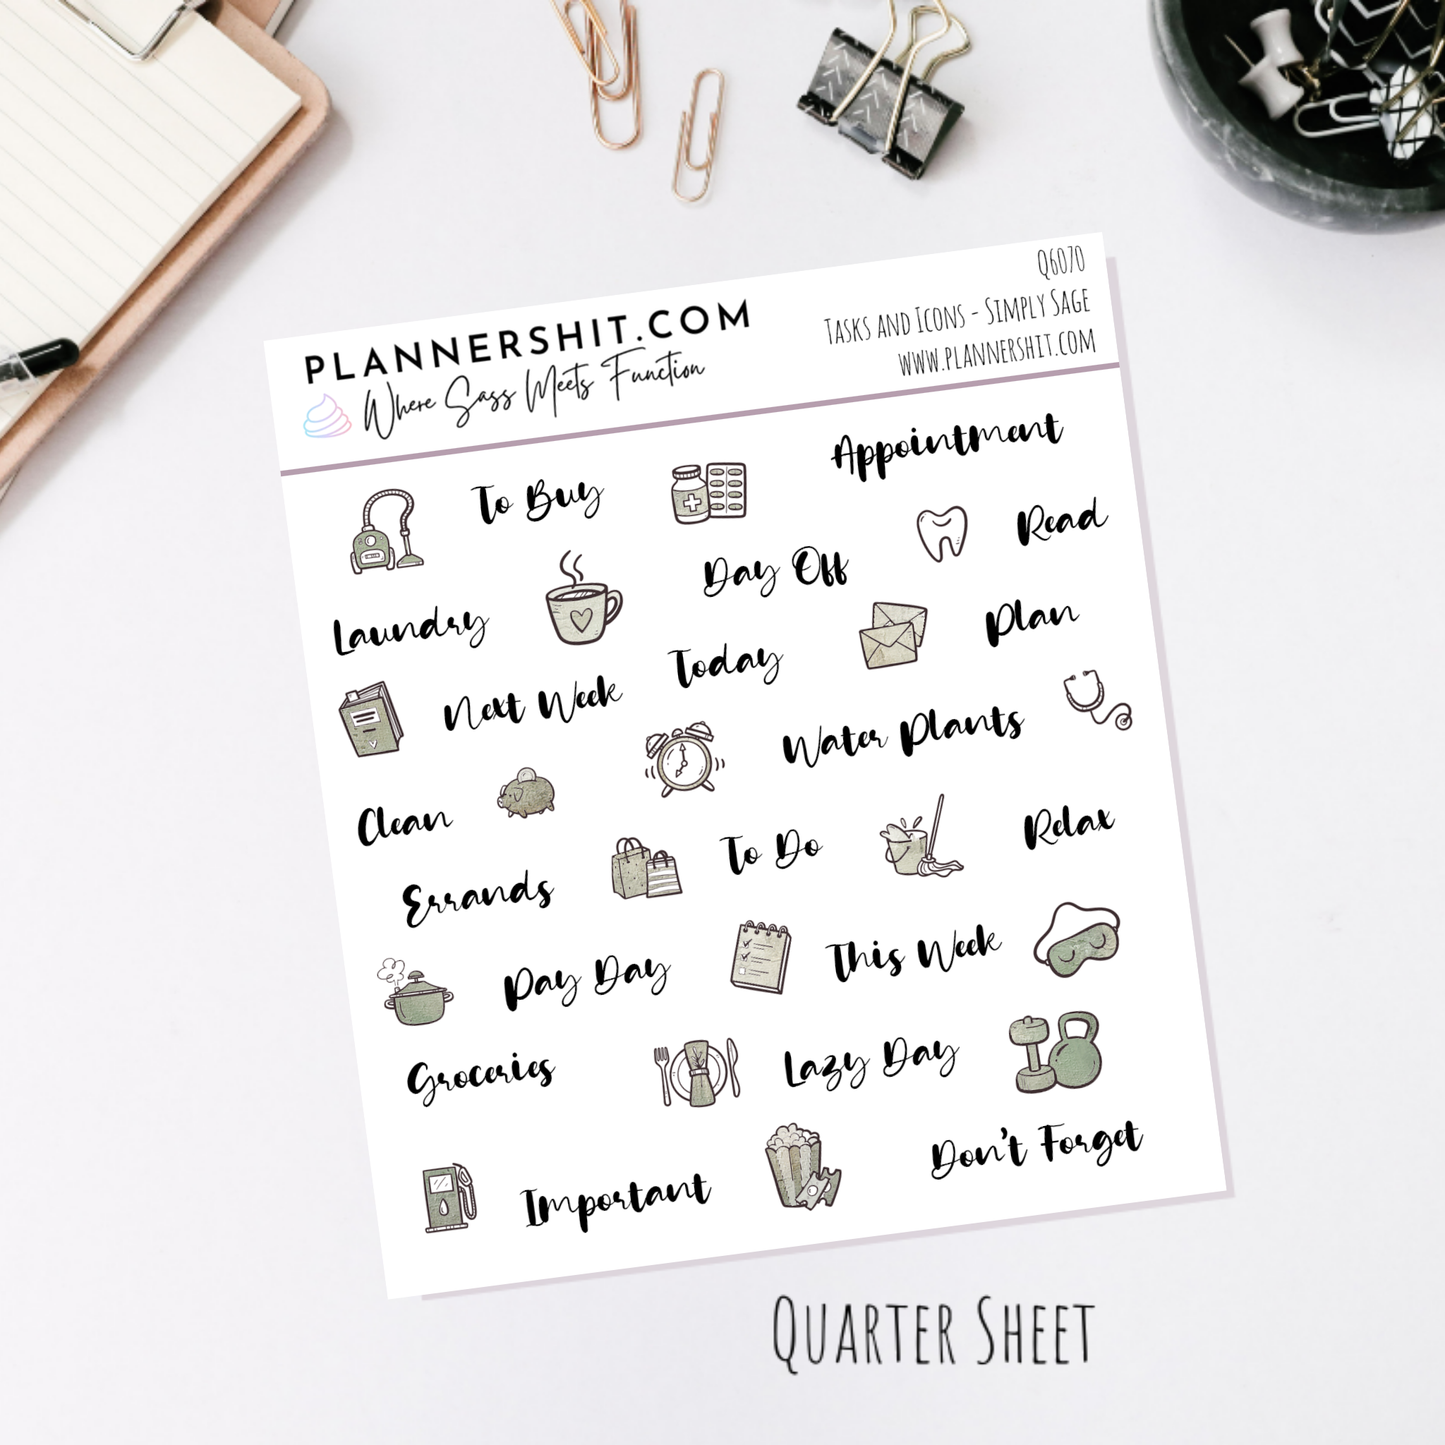 PLANNERSHIT.COM
Where Sass Meets Function
Q6070
Tasks and Icons - Simply Sage
www.plannershit.com
To Buy
Appointment
Read
Day Off
Laundry
Plan
Today
Next Week
Water Plants
Clean
To Do
Relax
Errands
This Week
Pay Day
Groceries
Lazy Day
Important
Don't Forget
Quarter Sheet